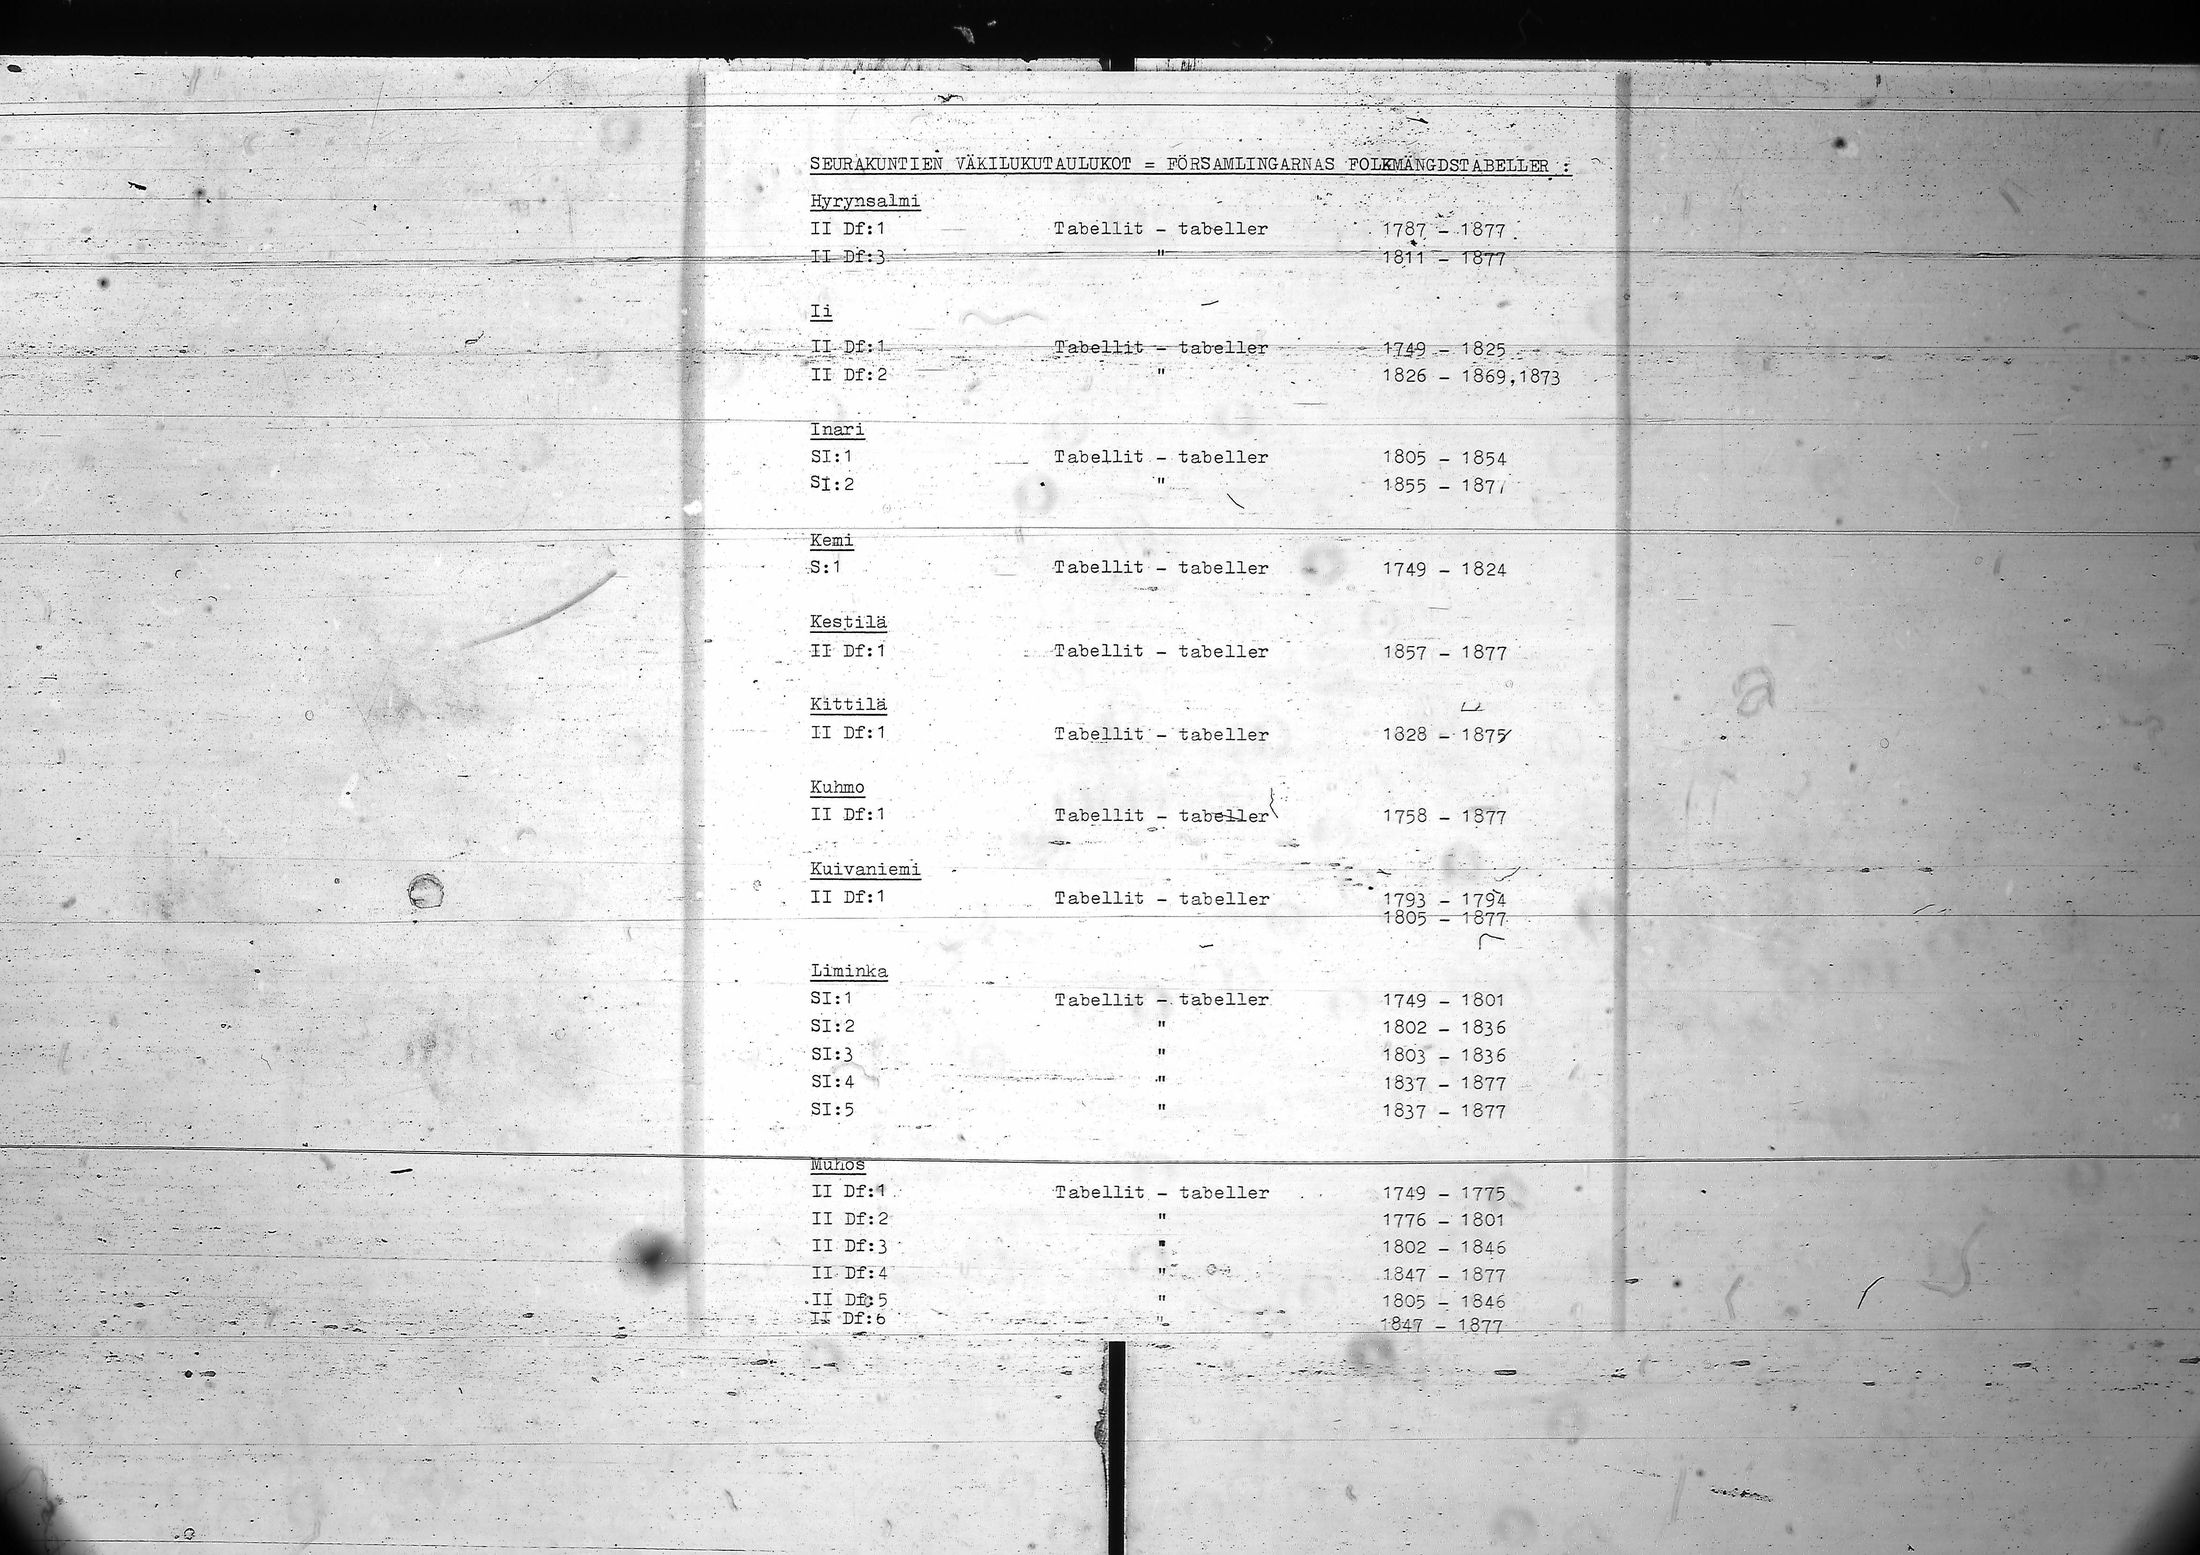 SEURAKUNTIEN VÄKILUKUTAULUKOT = FÖRSAMLINGARNAS FOLKMÄNGDSTABELLER :
Hyrynsalmi
II Df:1 Tabellit - tabeller 1787 - 1877
II Df:3 " 1811 - 1877
Ii
II Df:1 Tabellit - tabeller 1749 - 1825
II Df:2 " 1826 - 1869,1873
Inari
SI:1 Tabellit - tabeller 1805 - 1854
SI:2 " 1855 - 1877
Kemi
S:1 Tabellit - tabeller 1749 - 1824
Kestilä
II Df:1 Tabellit - tabeller 1857 - 1877
Kittilä
II Df:1 Tabellit - tabeller 1828 - 1875
Kuhmo
II Df:1 Tabellit - tabeller 1758 - 1877
Kuivaniemi
II Df:1 Tabellit - tabeller 1793 - 1794
1805 - 1877
Liminka
SI:1 Tabellit - tabeller 1749 - 1801
SI:2 " 1802 - 1836
SI:3 " 1803 - 1836
SI:4 " 1837 - 1877
SI:5 " 1837 - 1877
Muhos
II Df:1 Tabellit - tabeller 1749 - 1775
II Df:2 " 1776 - 1801
II Df:3 " 1802 - 1846
II Df:4 " 1847 - 1877
II Df:5 " 1805 - 1846
II Df:6 " 1847 - 1877